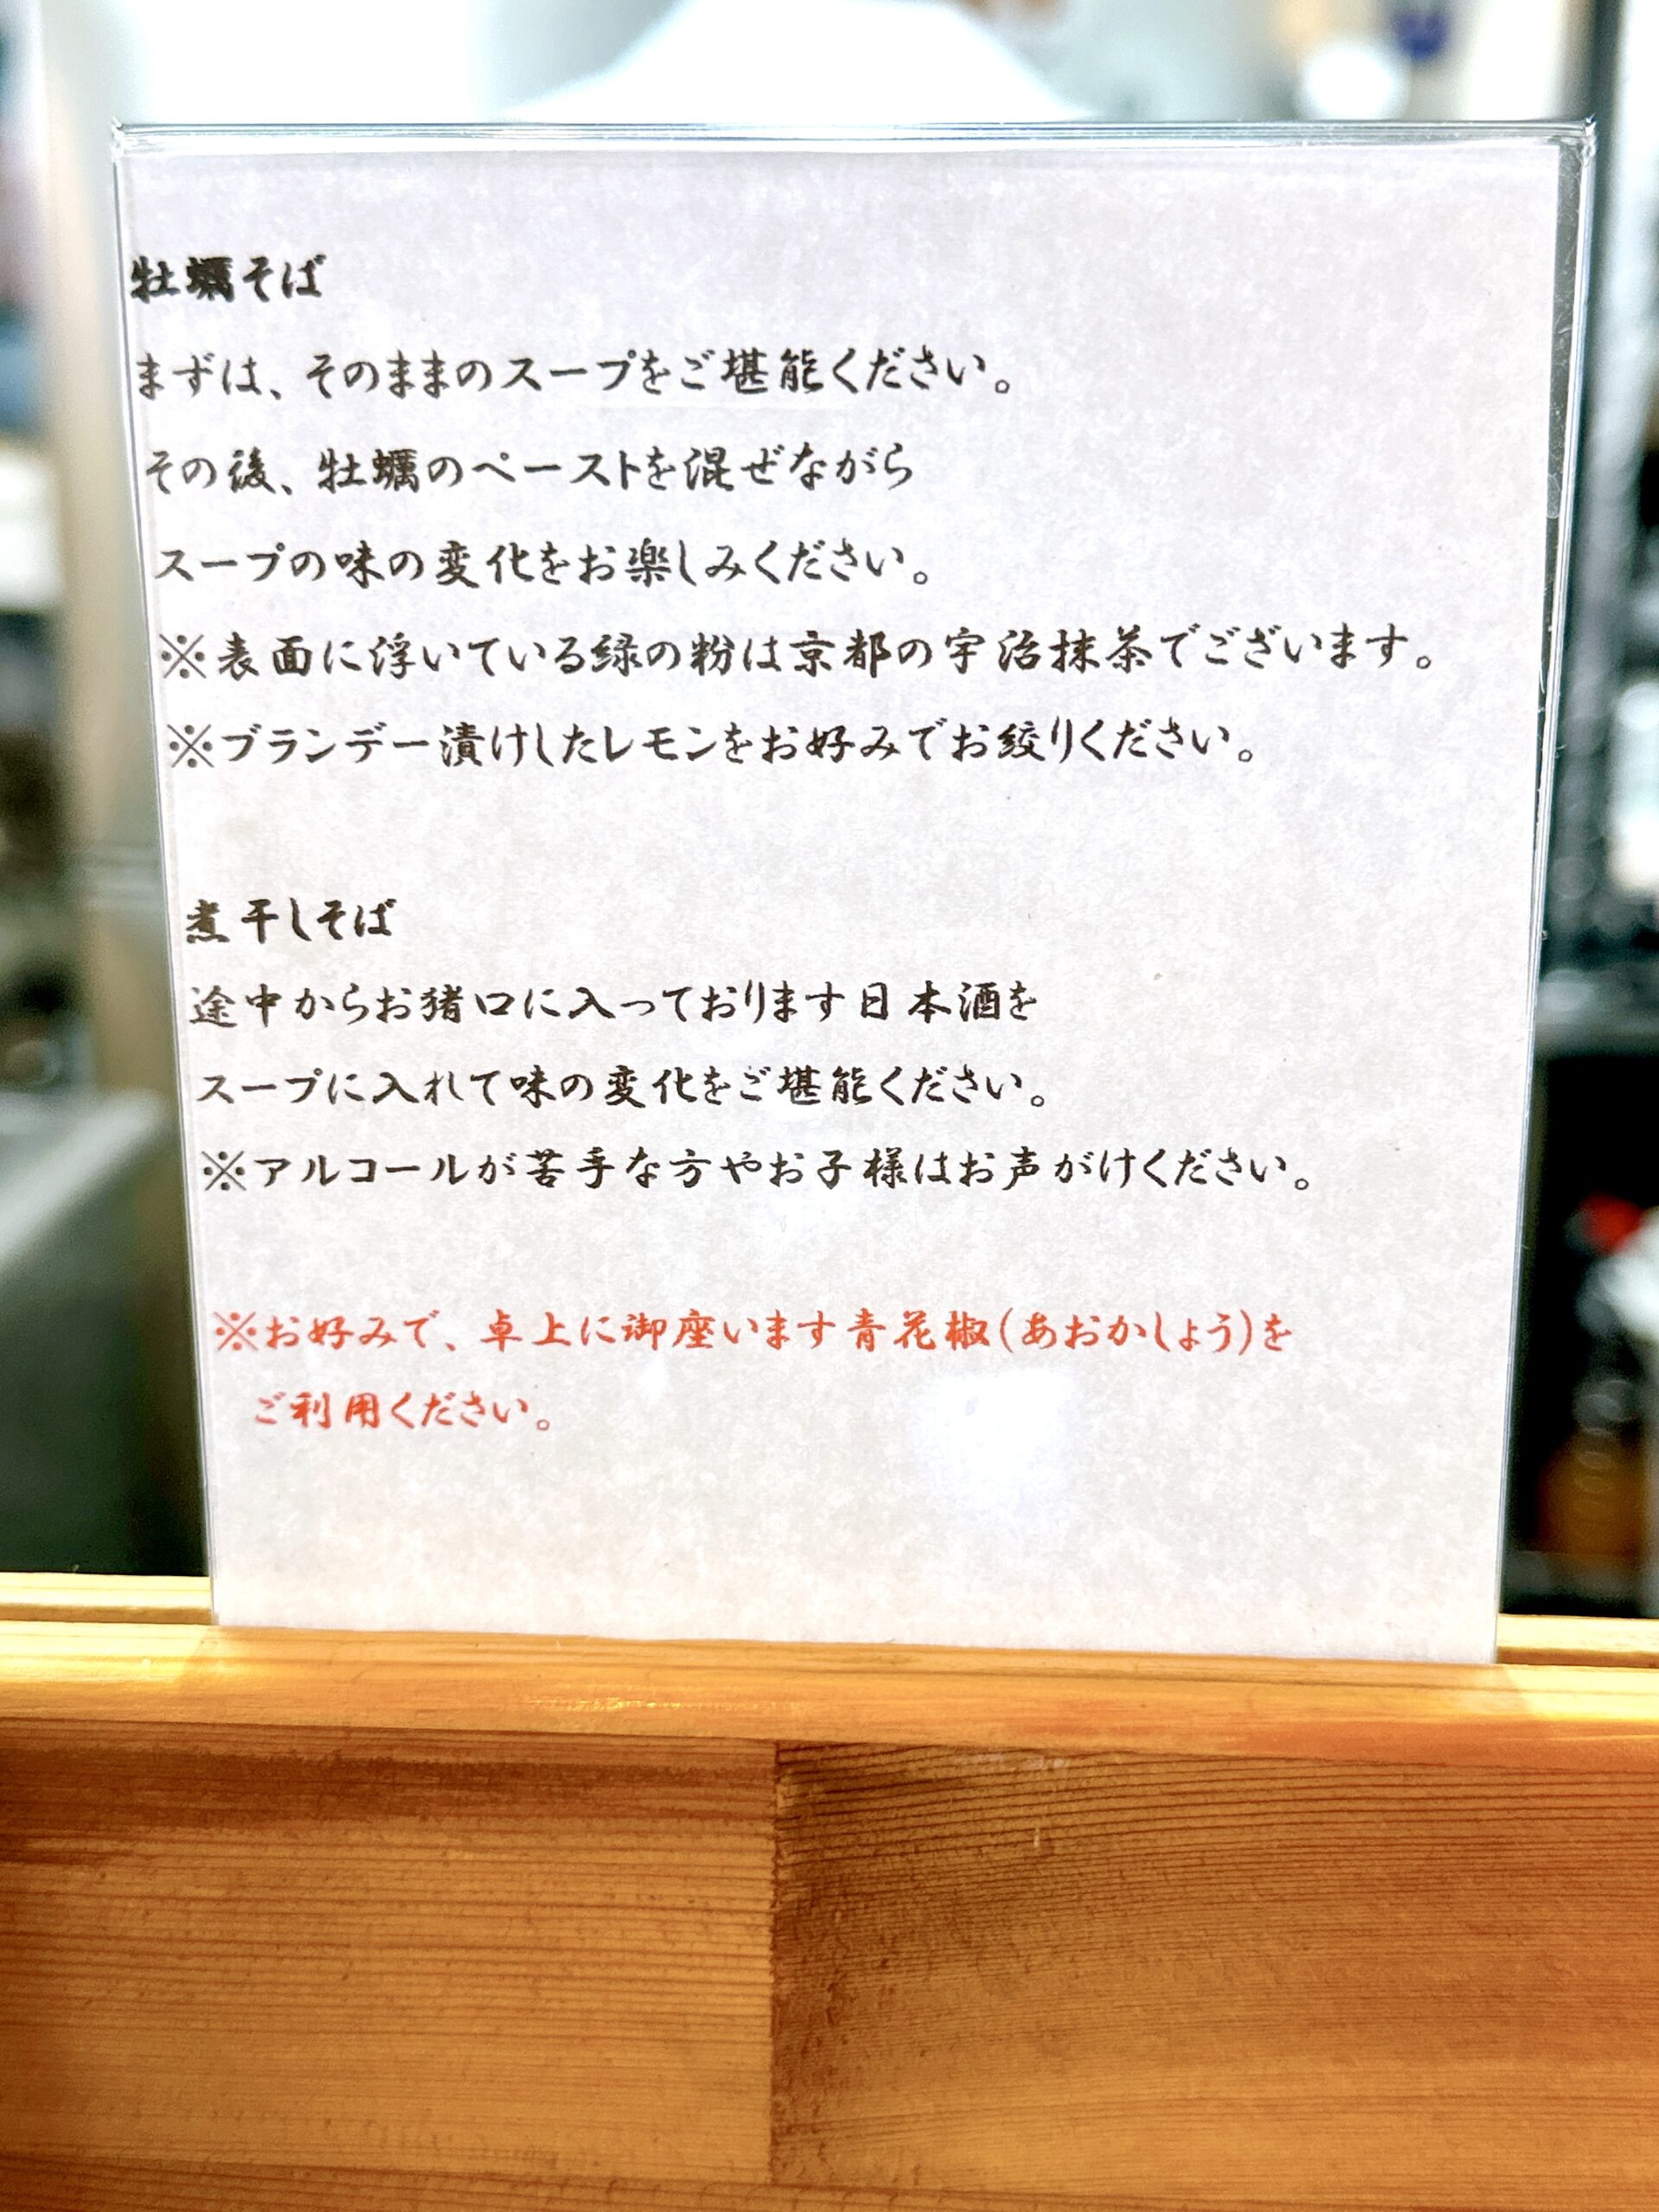 牡蠣そば
まずは、そのままのスープをご堪能ください。
その後、牡蠣のペーストを混ぜながら
スープの味の変化をお楽しみください。
※表面に浮いている緑の粉は京都の宇治抹茶でございます。
※ブランデー漬けしたレモンをお好みでお絞りください。
煮干しそば
途中からお猪口に入っております日本酒を
スープに入れて味の変化をご堪能ください。
※アルコールが苦手な方やお子様はお声がけください。
※お好みで、卓上に御座います青花椒(あおかしょう)を
ご利用ください。